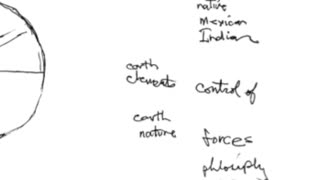 native
mexican
Indian
earth
elements
control of
earth
nature
forces
phlosiply